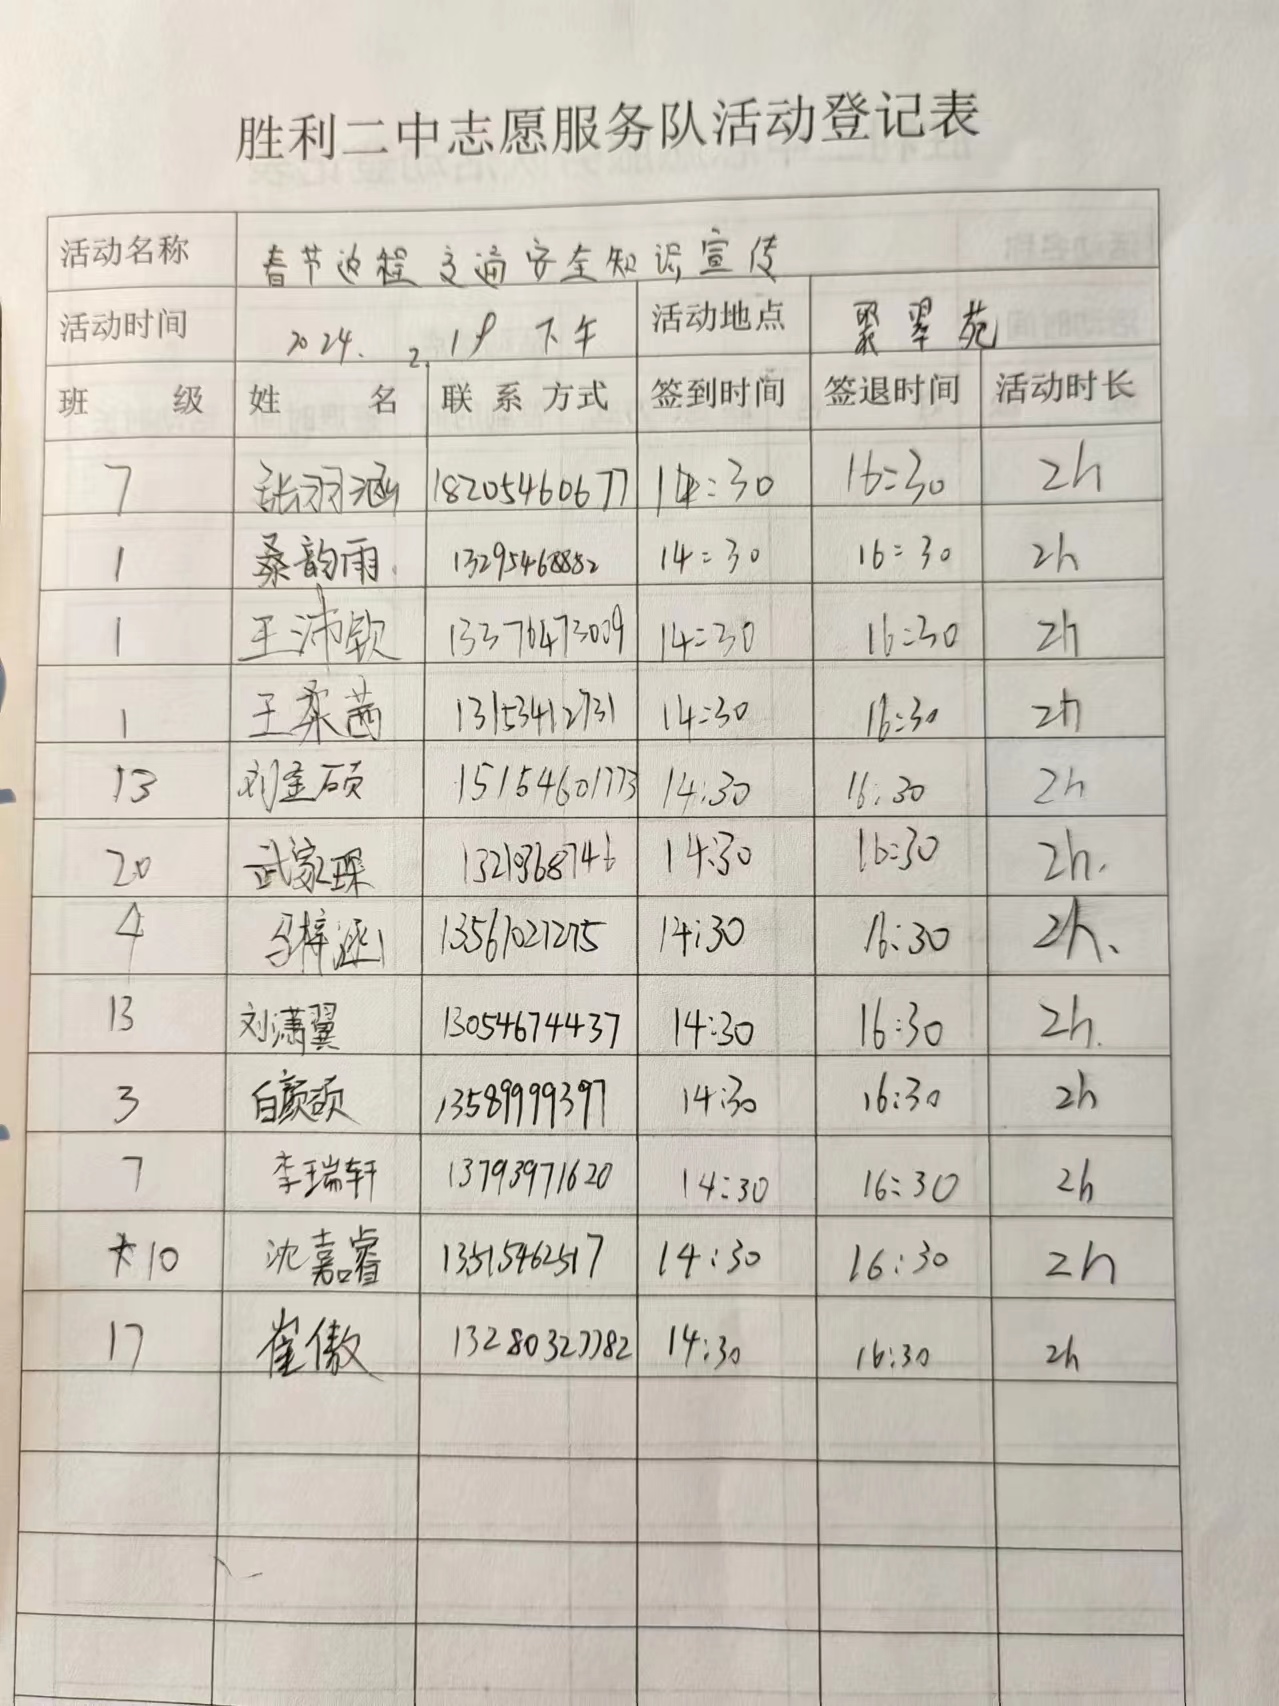 胜利二中志愿服务队活动登记表
活动名称 春节返程交通安全知识宣传
活动时间 2024.2.19 下午 活动地点 聚翠苑
班 级 姓 名 联系方式 签到时间 签退时间 活动时长
7 张羽涵 18205460677 14:30 16:30 2h
1 桑韵雨 13295468852 14:30 16:30 2h
1 王沛钦 13376473009 14:30 16:30 2h
1 王桑茜 13153412731 14:30 16:30 2h
13 刘金硕 15154601773 14:30 16:30 2h
20 武家琛 14:30 16:30 2h.
4 马梓涵 13561021275 14:30 16:30 2h.
13 刘潇翼 13054674437 14:30 16:30 2h.
3 白颜硕 13589999397 14:30 16:30 2h
7 李瑞轩 13793971620 14:30 16:30 2h
10 沈嘉睿 13515462517 14:30 16:30 2h
17 崔傲 13280327782 14:30 16:30 2h